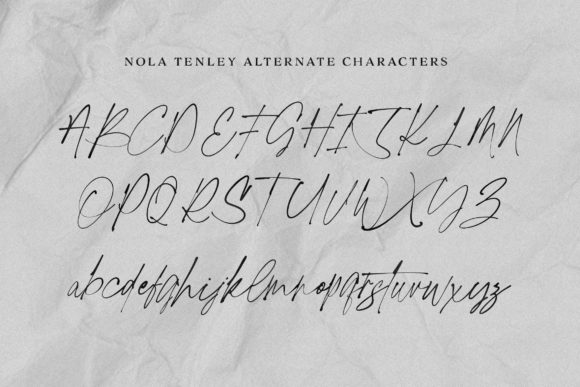 NOLA TENLEY ALTERNATE CHARACTERS
ABCDEFGHIJKLMN
OPQRSTUVWXYZ
abcdefghijklmnopqrstuvwxyz